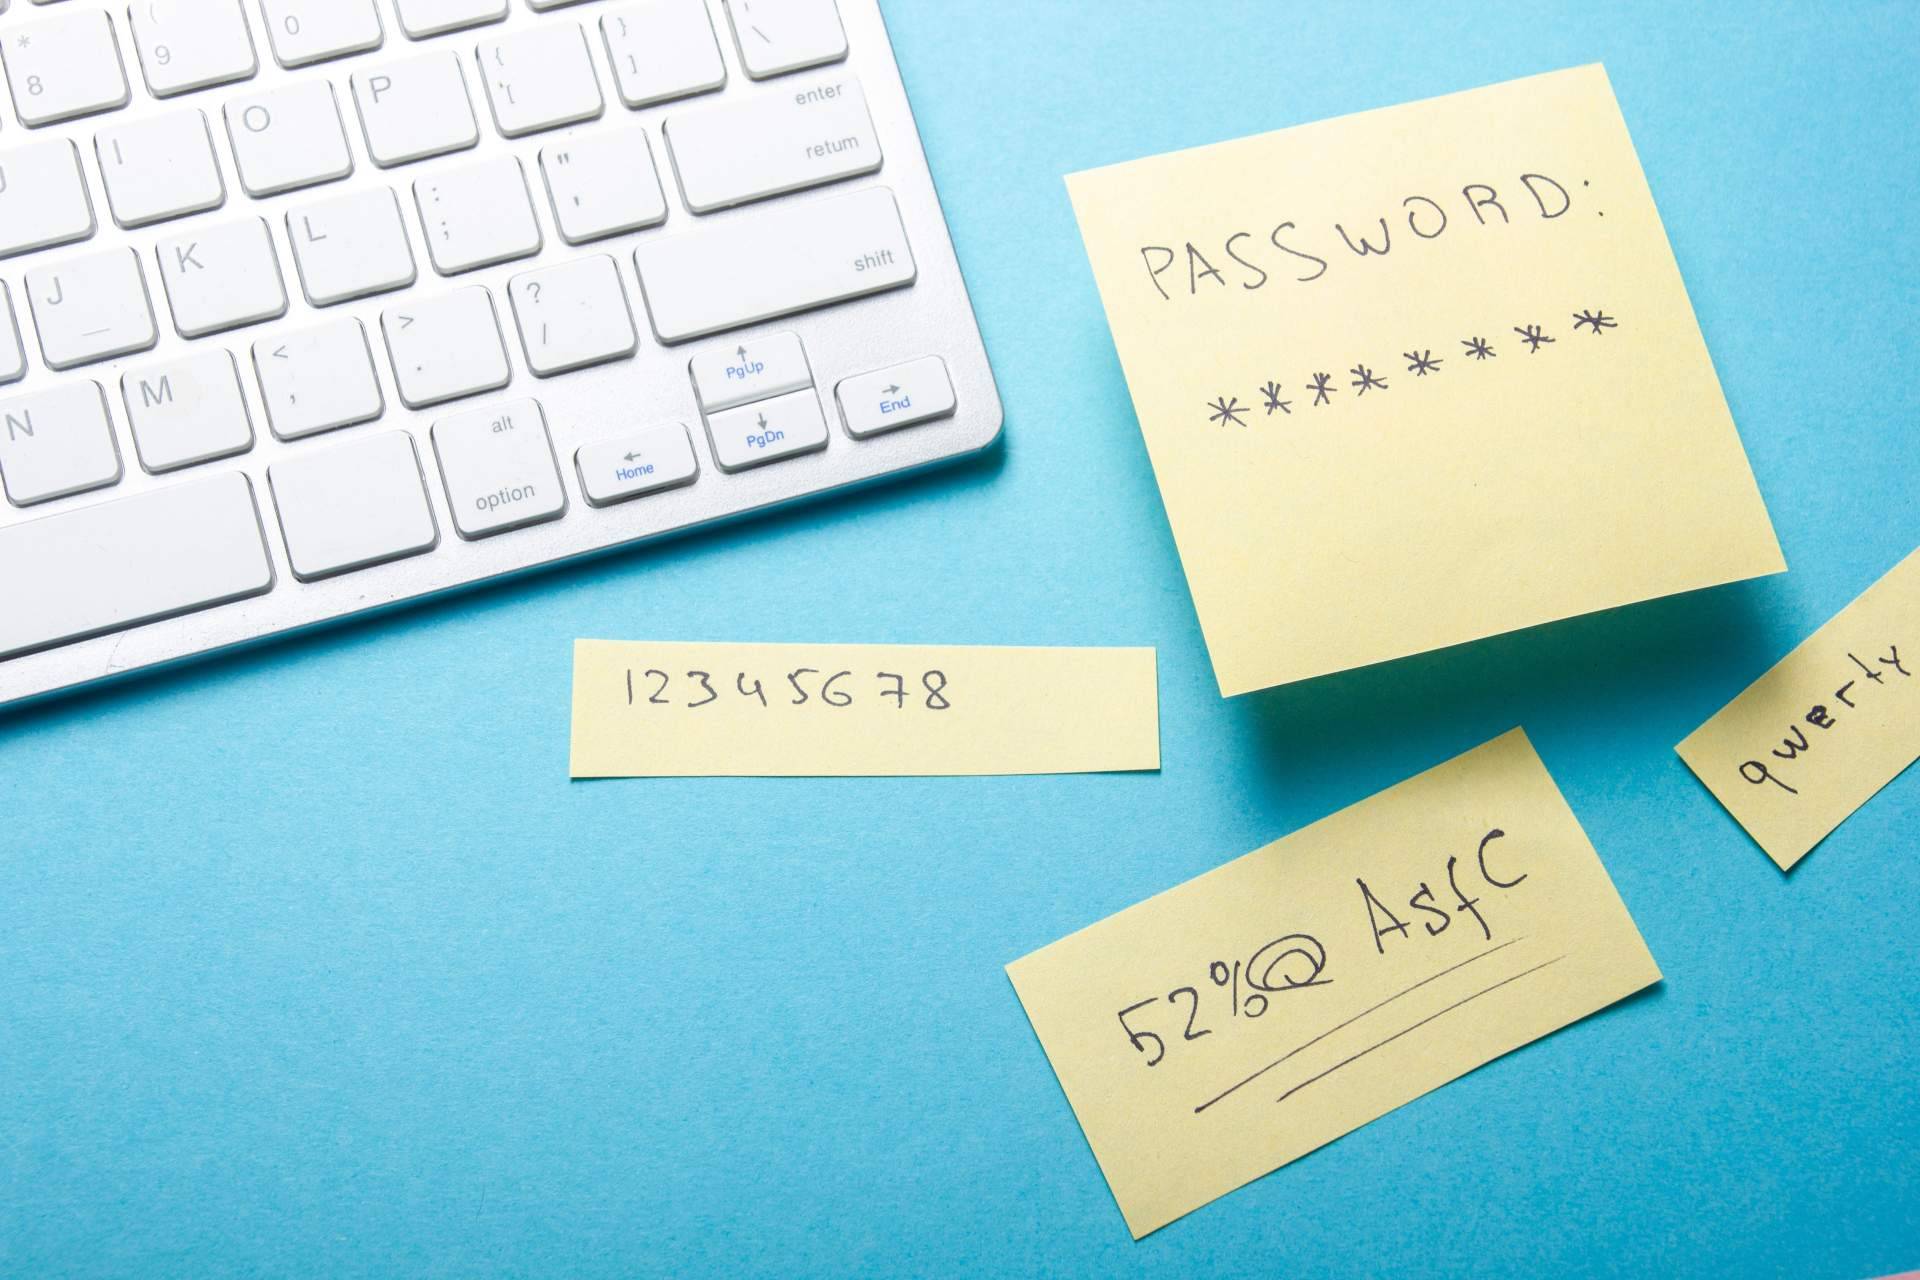 * 8
( 9
0
{ [
} ]
| \
I
O
P
enter
return
J
K
L
: ;
" '
shift
N
M
< ,
> .
? /
alt
option
Home
PgUp
PgDn
End
PASSWORD:
********
12345678
qwerty
52%@ AsfC